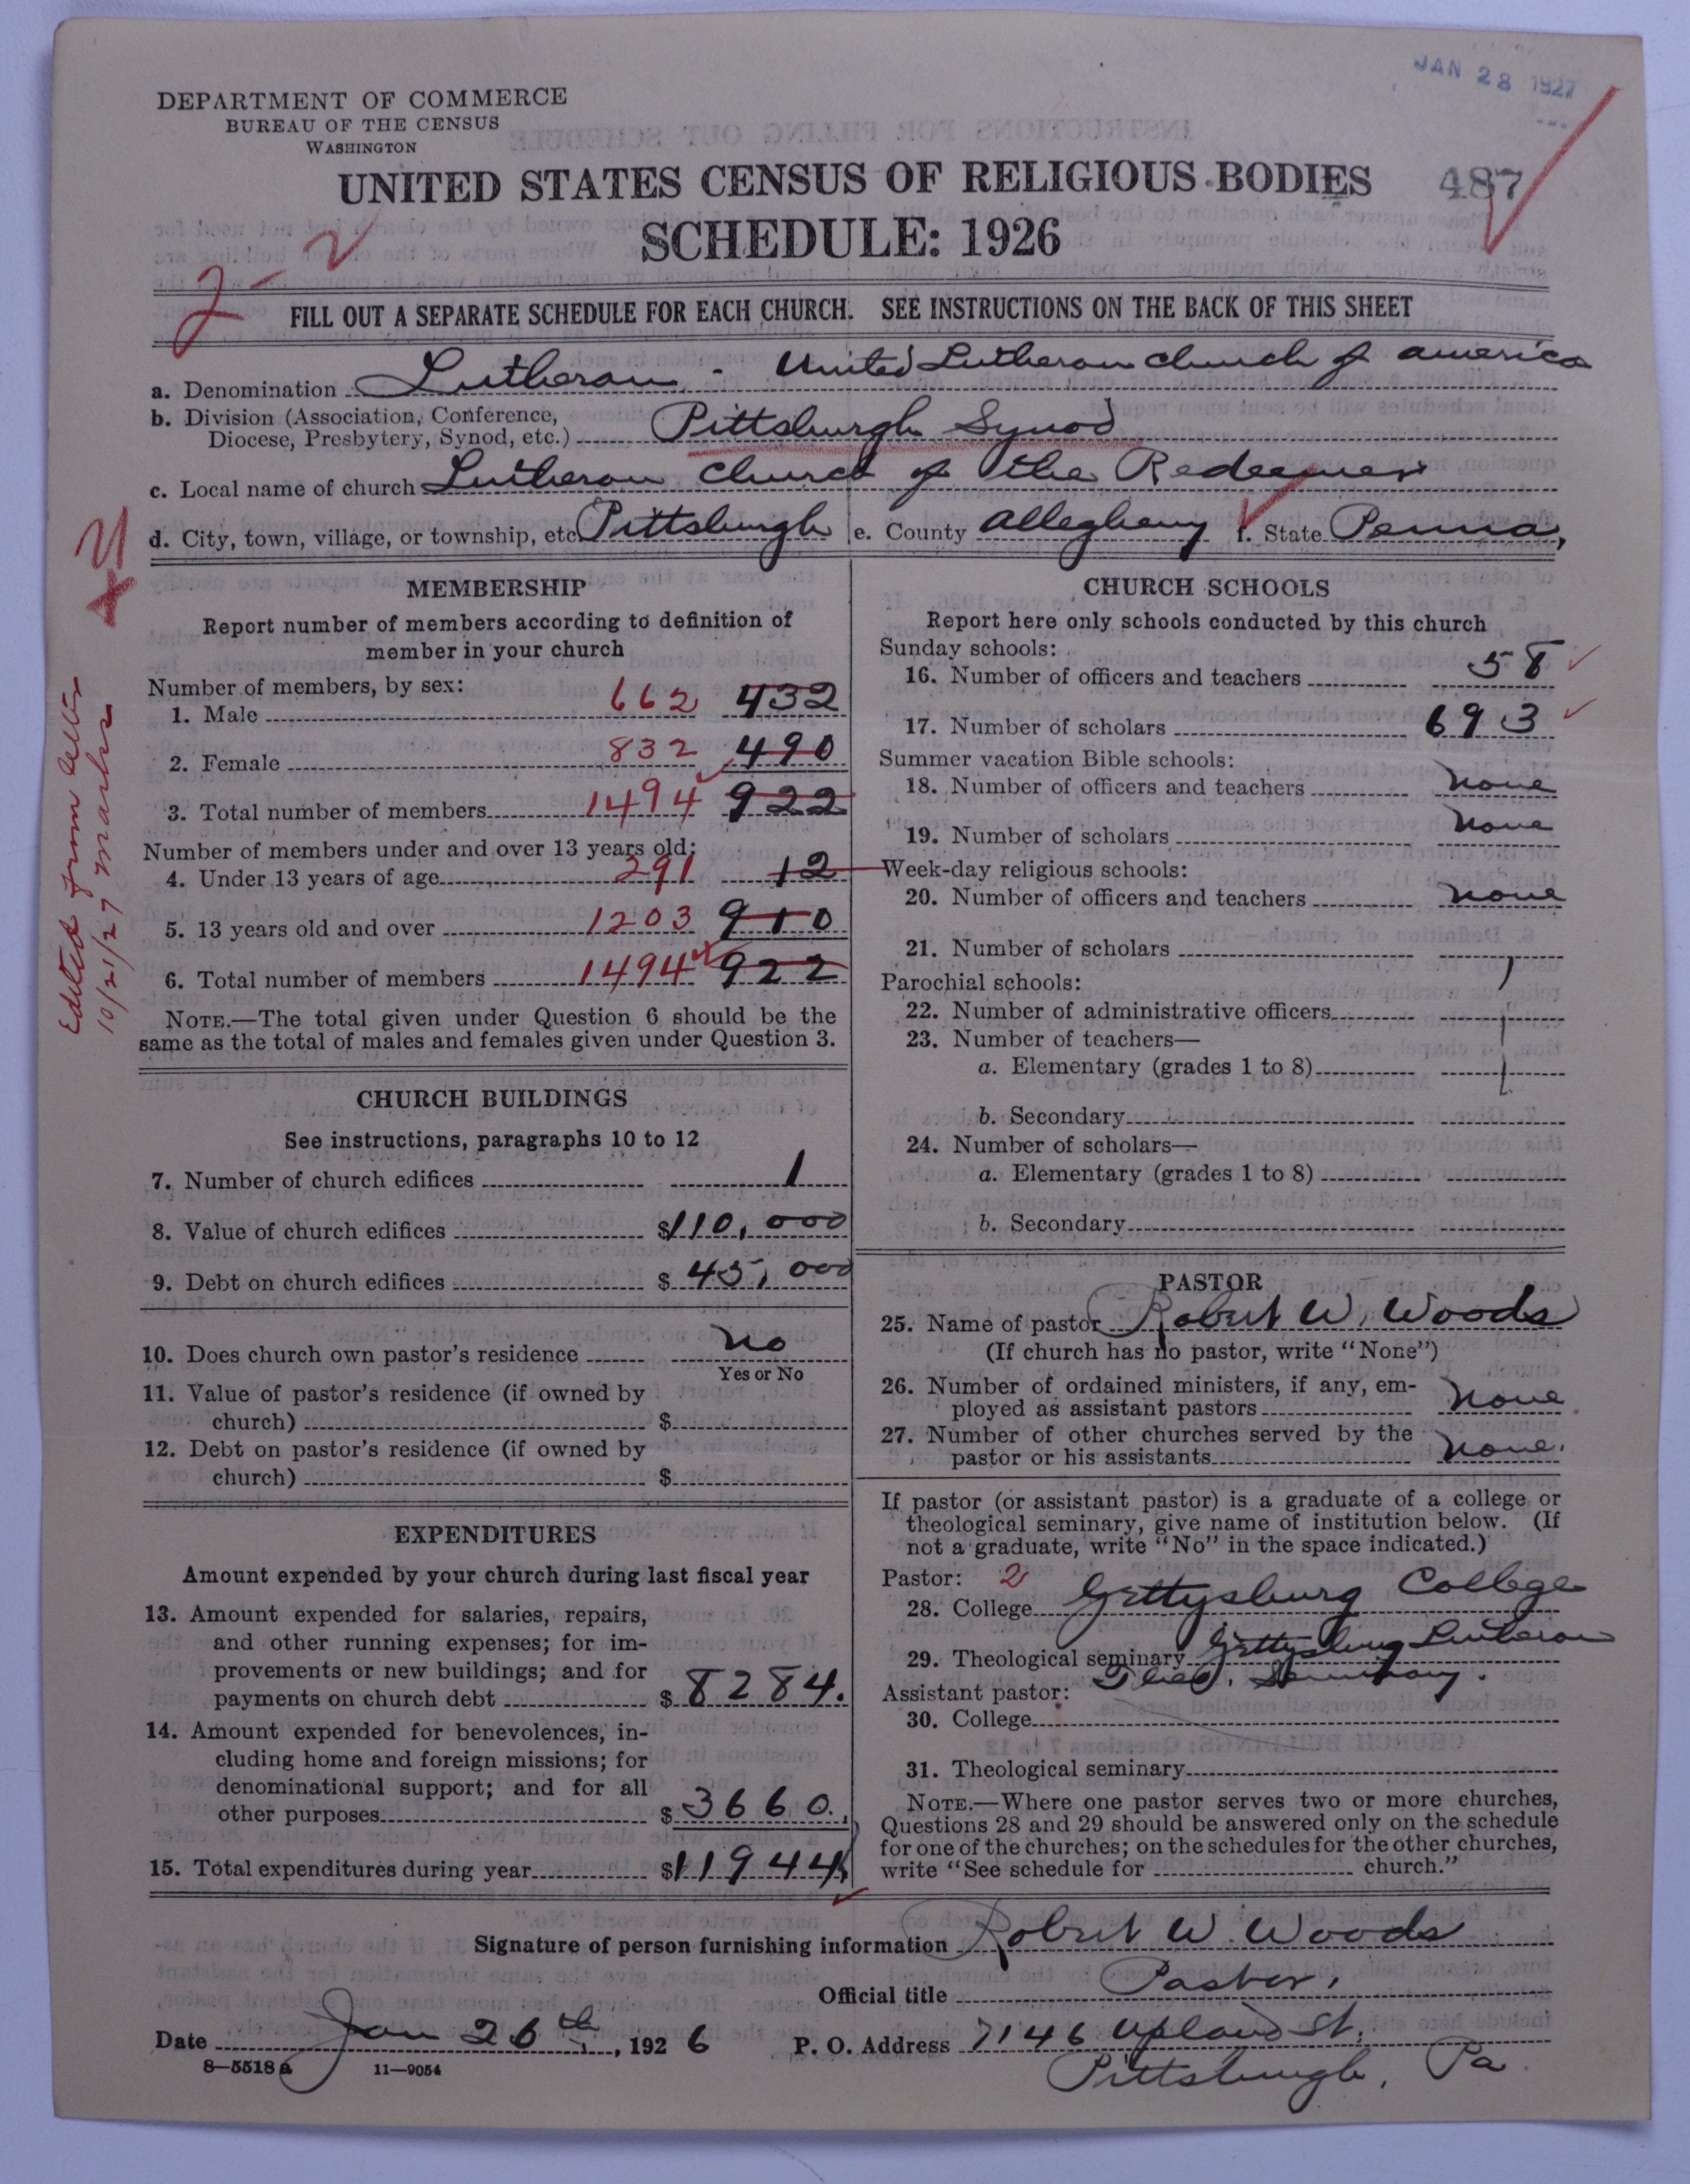 JAN 28 1927
DEPARTMENT OF COMMERCE
BUREAU OF THE CENSUS
WASHINGTON
UNITED STATES CENSUS OF RELIGIOUS BODIES 487
SCHEDULE: 1926
2-2
FILL OUT A SEPARATE SCHEDULE FOR EACH CHURCH. SEE INSTRUCTIONS ON THE BACK OF THIS SHEET
a. Denomination Lutheran - United Lutheran Church of America
b. Division (Association, Conference,
Diocese, Presbytery, Synod, etc.) Pittsburgh Synod
c. Local name of church Lutheran Church of the Redeemer
d. City, town, village, or township, etc. Pittsburgh e. County Allegheny f. State Penna,
Edited from letter
10/21/27
MEMBERSHIP
Report number of members according to definition of
member in your church
Number of members, by sex:
1. Male 662 432
2. Female 832 490
3. Total number of members 1494 922
Number of members under and over 13 years old:
4. Under 13 years of age 291 12
5. 13 years old and over 1203 910
6. Total number of members 1494 922
NOTE.—The total given under Question 6 should be the
same as the total of males and females given under Question 3.
CHURCH BUILDINGS
See instructions, paragraphs 10 to 12
7. Number of church edifices 1
8. Value of church edifices $110,000
9. Debt on church edifices $ 45,000
10. Does church own pastor's residence No
Yes or No
11. Value of pastor's residence (if owned by
church) $
12. Debt on pastor's residence (if owned by
church) $
EXPENDITURES
Amount expended by your church during last fiscal year
13. Amount expended for salaries, repairs,
and other running expenses; for im-
provements or new buildings; and for
payments on church debt $ 8284.
14. Amount expended for benevolences, in-
cluding home and foreign missions; for
denominational support; and for all
other purposes $ 3660.
15. Total expenditures during year $11944
CHURCH SCHOOLS
Report here only schools conducted by this church
Sunday schools:
16. Number of officers and teachers 58
17. Number of scholars 693
Summer vacation Bible schools:
18. Number of officers and teachers None
19. Number of scholars None
Week-day religious schools:
20. Number of officers and teachers None
21. Number of scholars
Parochial schools:
22. Number of administrative officers
23. Number of teachers—
a. Elementary (grades 1 to 8)
b. Secondary
24. Number of scholars—
a. Elementary (grades 1 to 8)
b. Secondary
PASTOR
25. Name of pastor Robert W. Woods
(If church has no pastor, write "None")
26. Number of ordained ministers, if any, em-
ployed as assistant pastors None
27. Number of other churches served by the
pastor or his assistants None.
If pastor (or assistant pastor) is a graduate of a college or
theological seminary, give name of institution below. (If
not a graduate, write "No" in the space indicated.)
Pastor: 2
28. College Gettysburg College
29. Theological seminary Gettysburg Lutheran
Theo. Seminary.
Assistant pastor:
30. College
31. Theological seminary
NOTE.—Where one pastor serves two or more churches,
Questions 28 and 29 should be answered only on the schedule
for one of the churches; on the schedules for the other churches,
write "See schedule for church."
Signature of person furnishing information Robert W. Woods
Official title Pastor.
Date Jan 26th, 1926 P. O. Address 7146 Upland St.
Pittsburgh, Pa
8—5518 a 11—9054